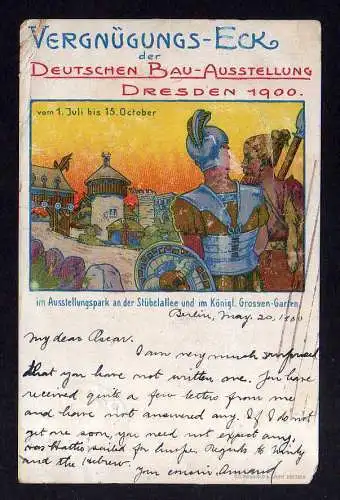 VERGNÜGUNGS-ECK
der
DEUTSCHEN BAU-AUSSTELLUNG
DRESDEN 1900.
vom 1. Juli bis 15. October
im Ausstellungspark an der Stübelallee und im Königl. Grossen-Garten
Berlin, May. 20, 1900
My dear Oscar.
I am very much surprised
that you have not written one. You have
received quite a few letters from me
and have not answered any. If I do not
get one soon, you need not expect any.
Hattie sailed for Regards to
and the Hebrew. Your Armand